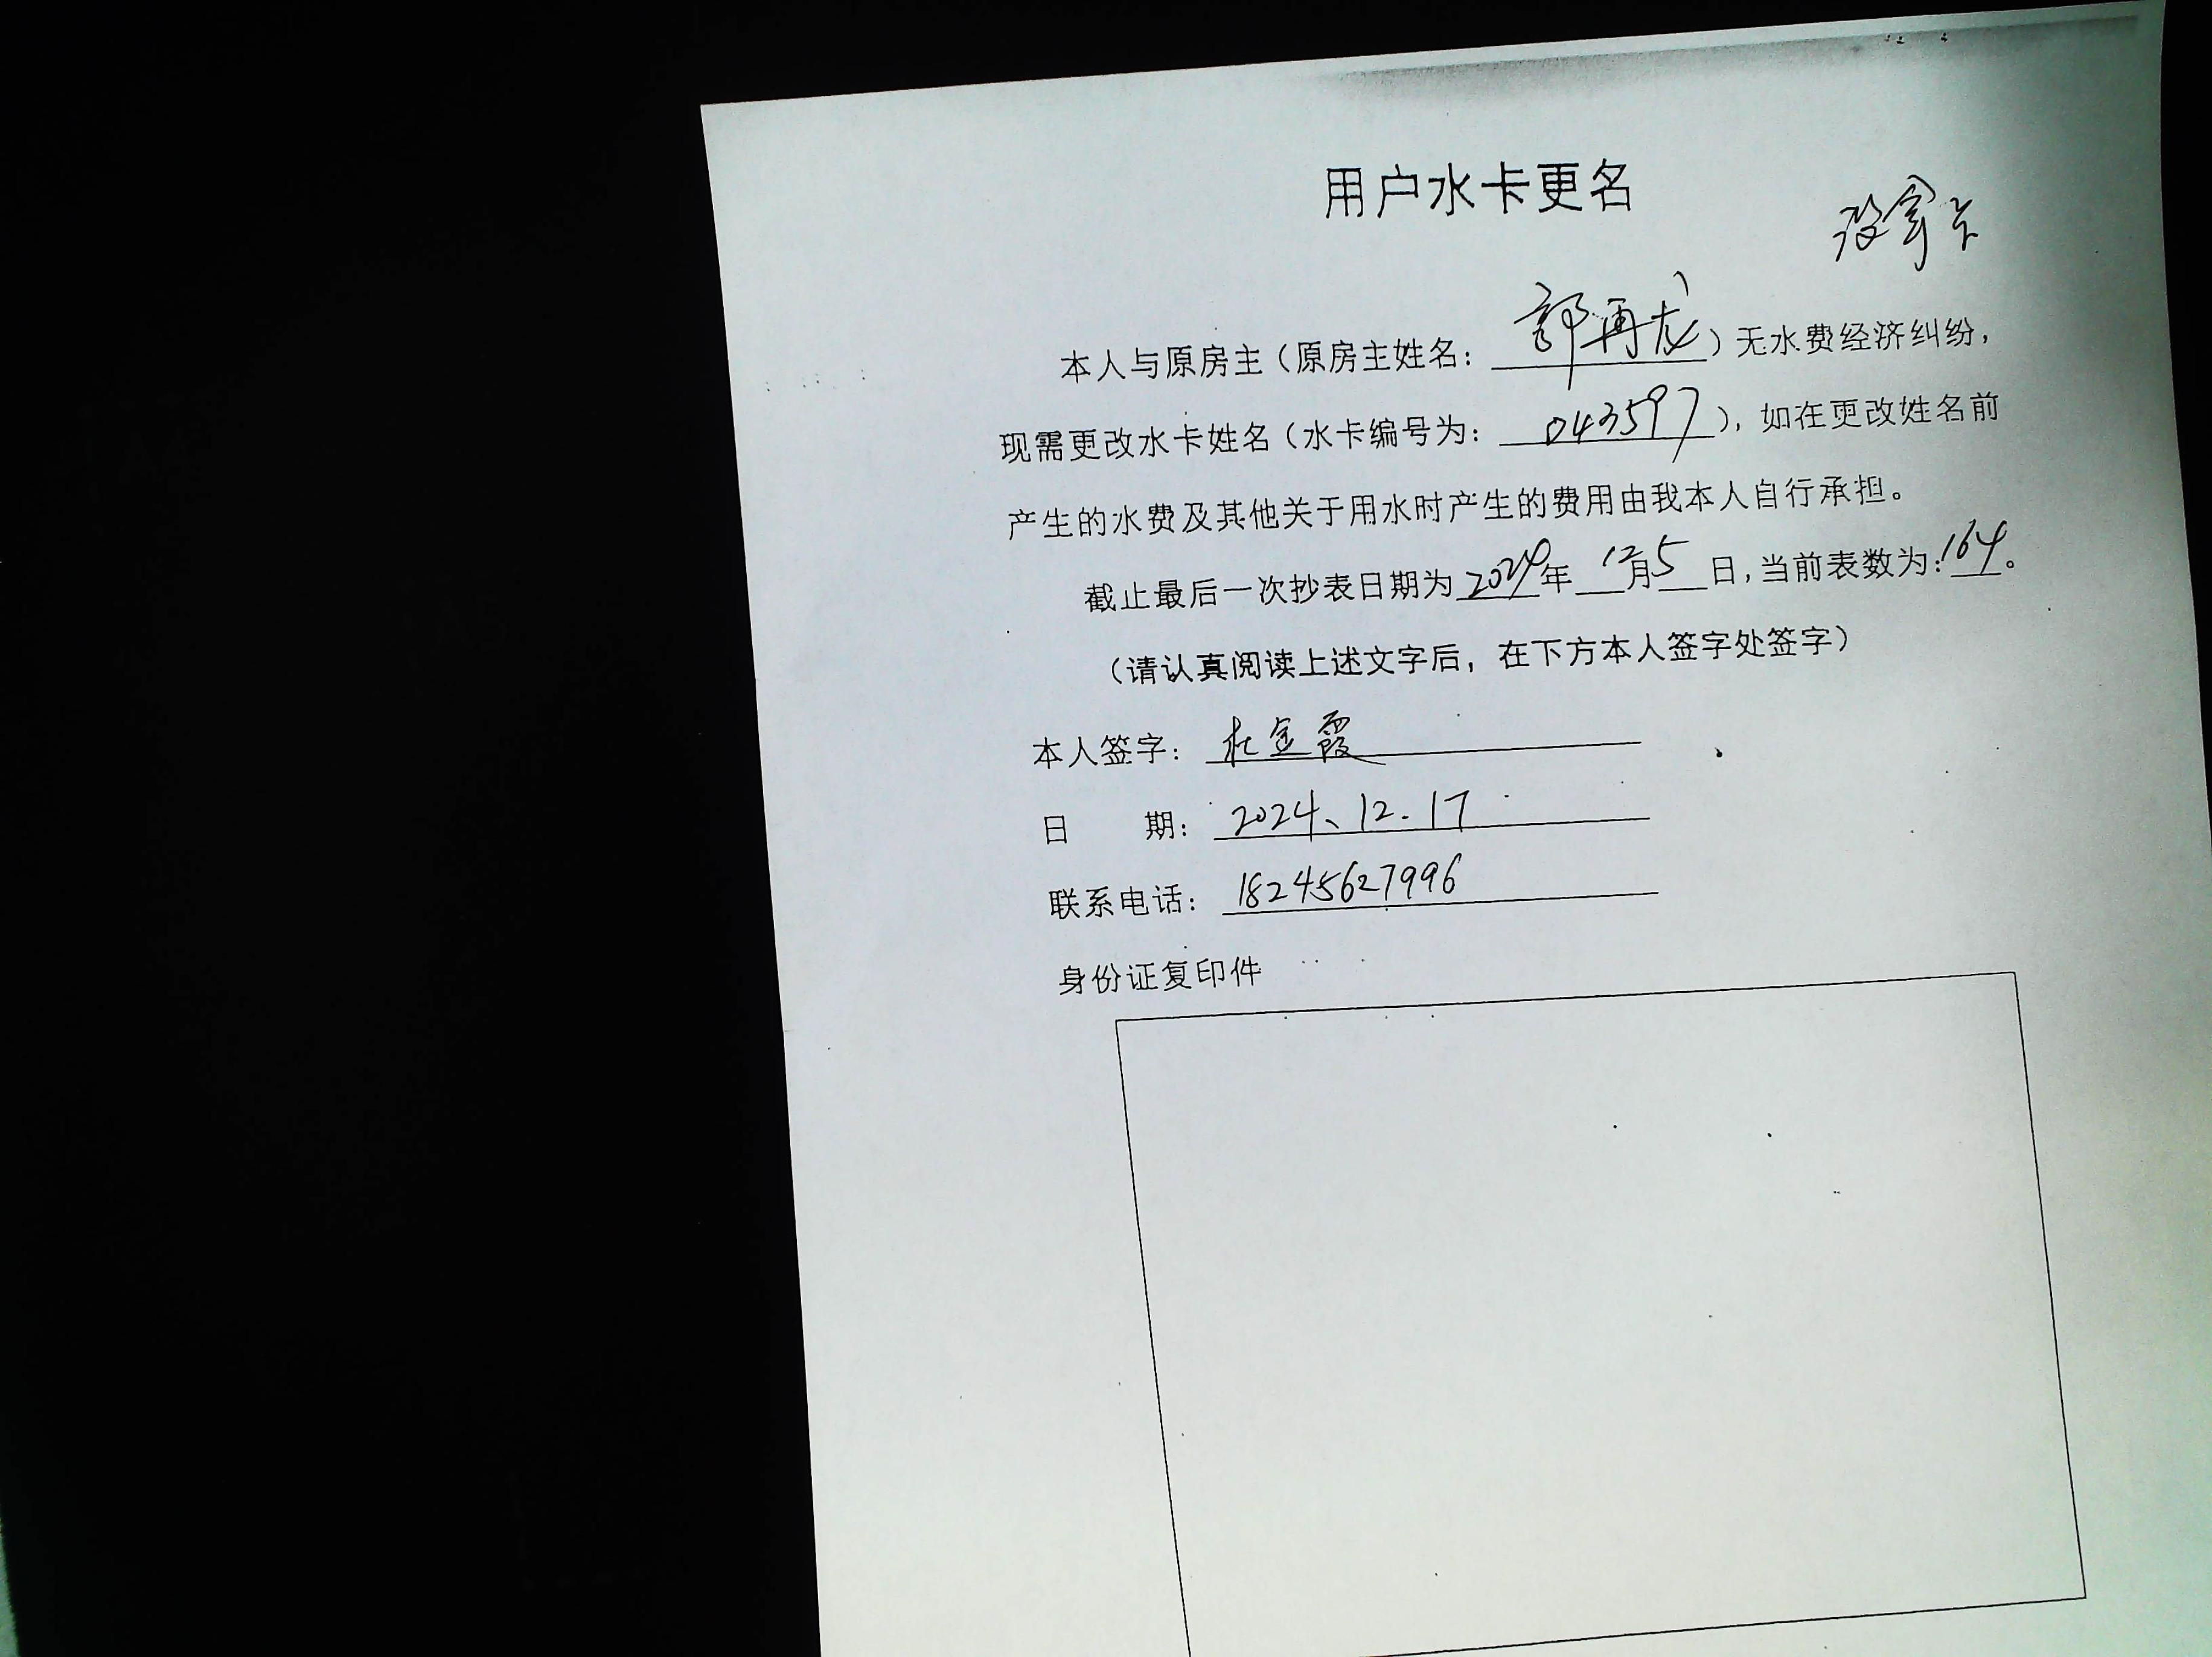 用户水卡更名
没拿卡
本人与原房主（原房主姓名：郭再龙）无水费经济纠纷，
现需更改水卡姓名（水卡编号为：043597），如在更改姓名前
产生的水费及其他关于用水时产生的费用由我本人自行承担。
截止最后一次抄表日期为2024年12月5日，当前表数为：164。
（请认真阅读上述文字后，在下方本人签字处签字）
本人签字：杜金霞
日 期：2024、12.17
联系电话：18245627996
身份证复印件